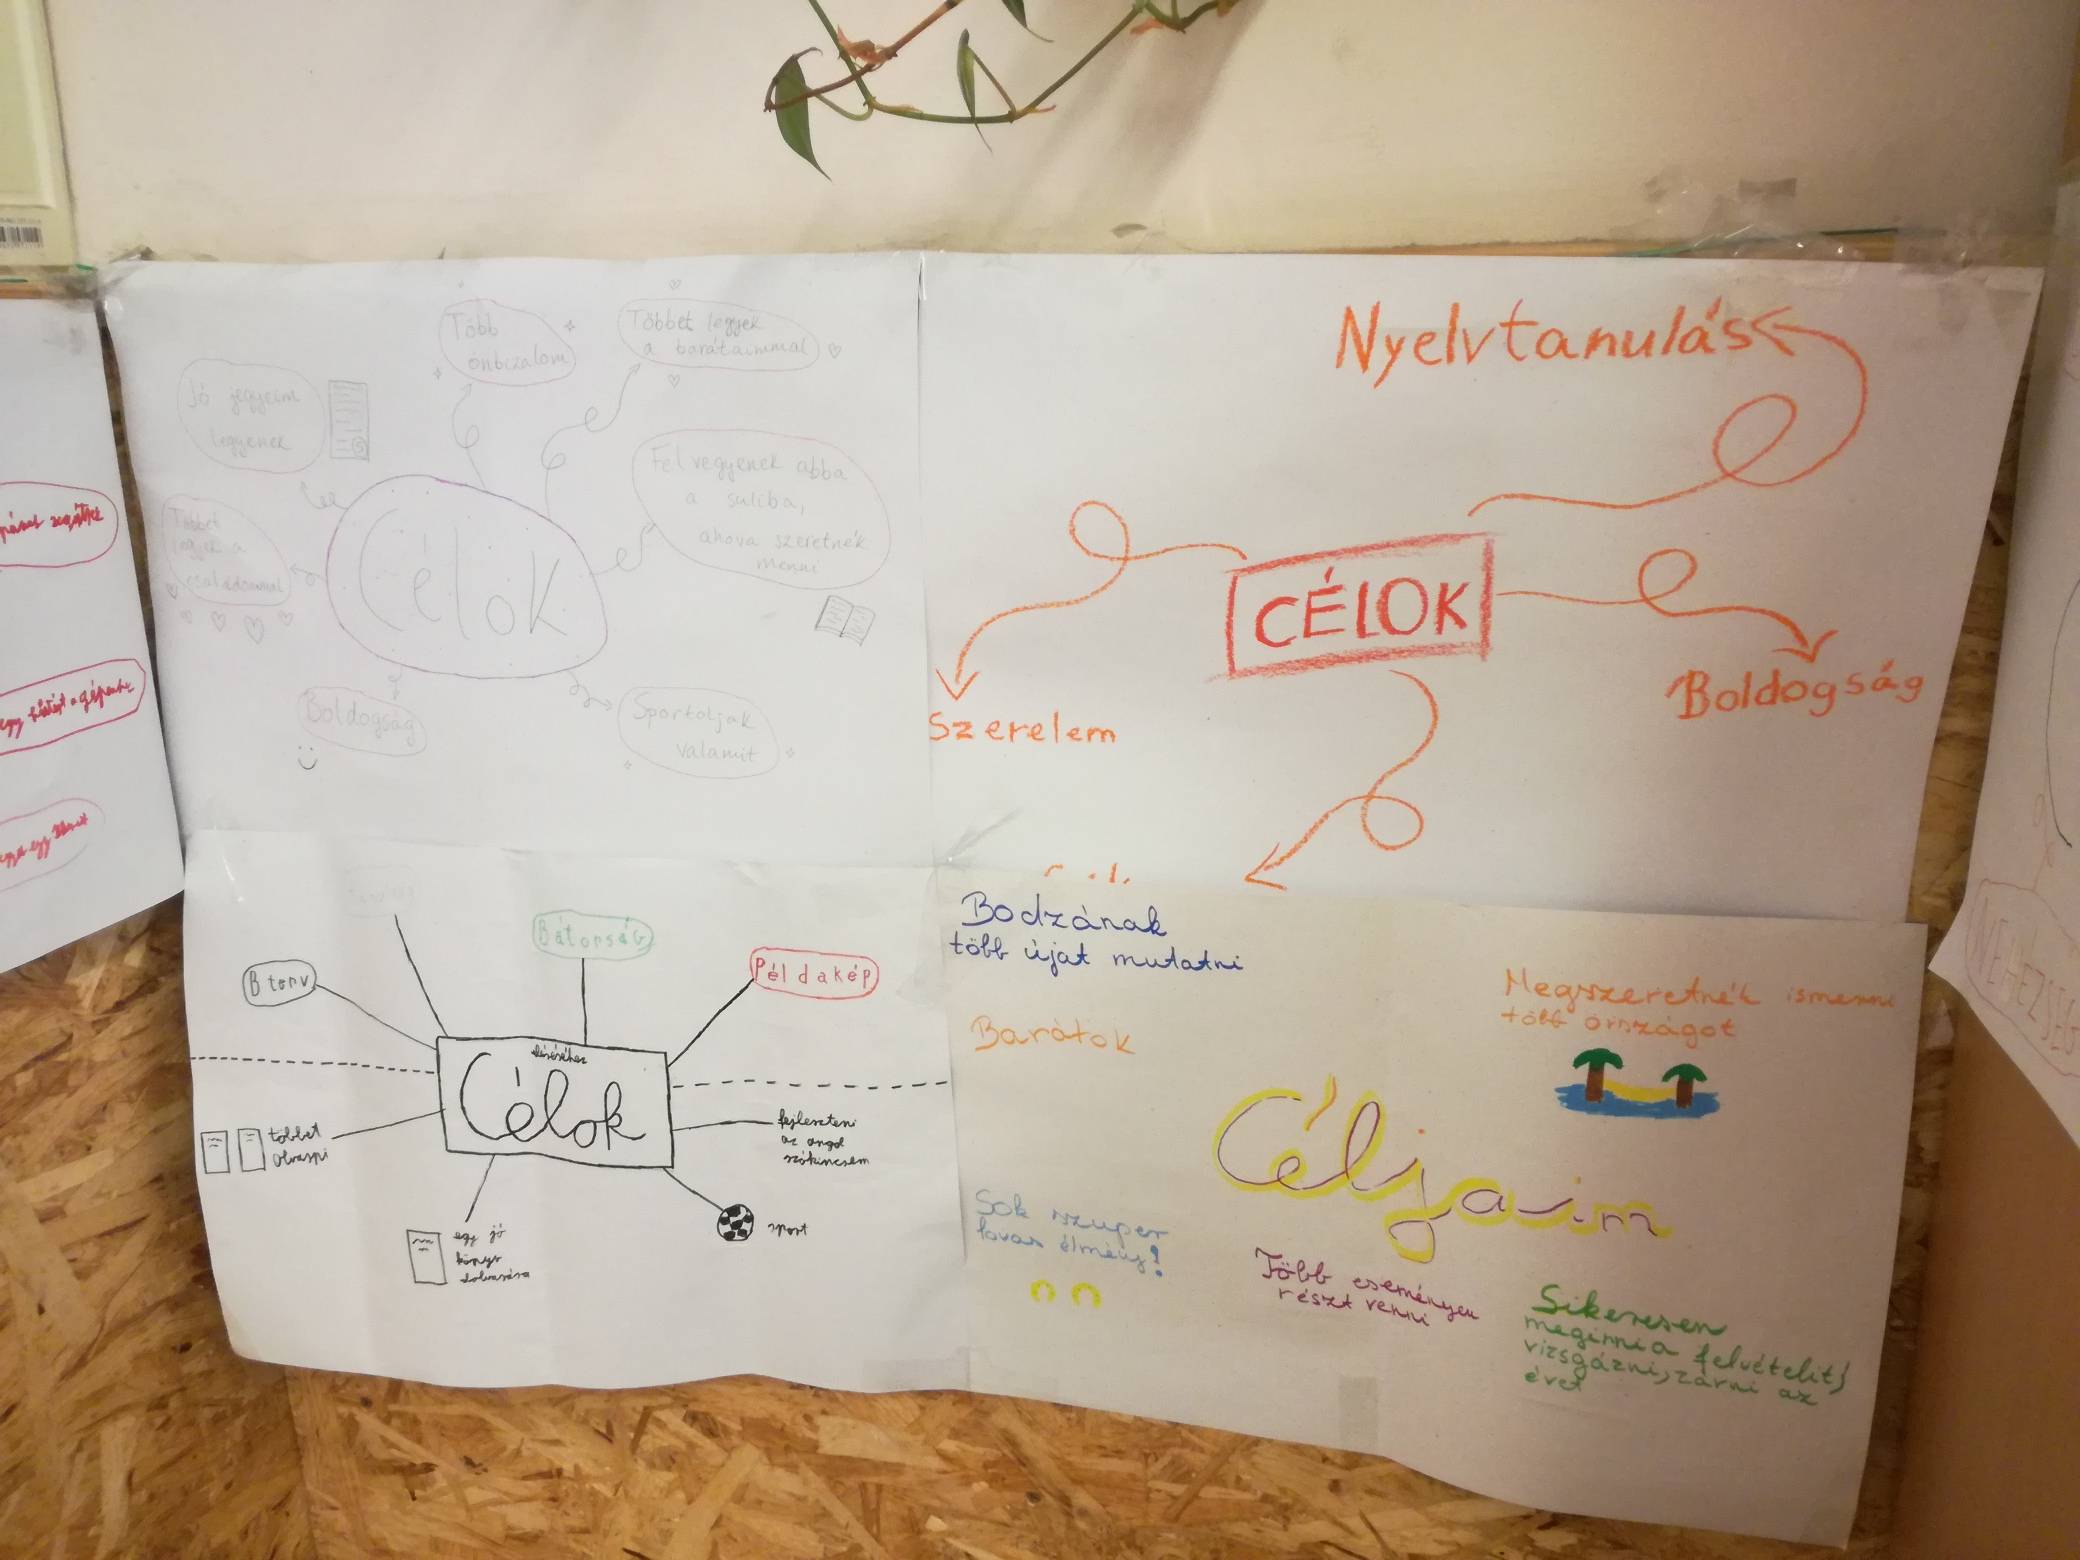 Több
önbizalom
Többet legyek
a barátaimmal
Jó jegyeim
legyenek
Felvegyenek abba
a suliba,
ahova szeretnék
menni
Többet
legyek a
családommal
Célok
Boldogság
Sportoljak
valamit
Nyelvtanulás
CÉLOK
Szerelem
Boldogság
Bátorság
B terv
Példakép
eléréséhez
Célok
többet
olvasni
fejleszteni
az angol
szókincsem
egy jó
könyv
elolvasása
sport
Bodzának
több újat mutatni
Megszeretnék ismerni
több országot
Barátok
Céljaim
Sok szuper
lovas élmény!
Több eseményen
részt venni
Sikeresen
megírni a felvételit,
vizsgázni, zárni az
évet
NEHÉZSÉG